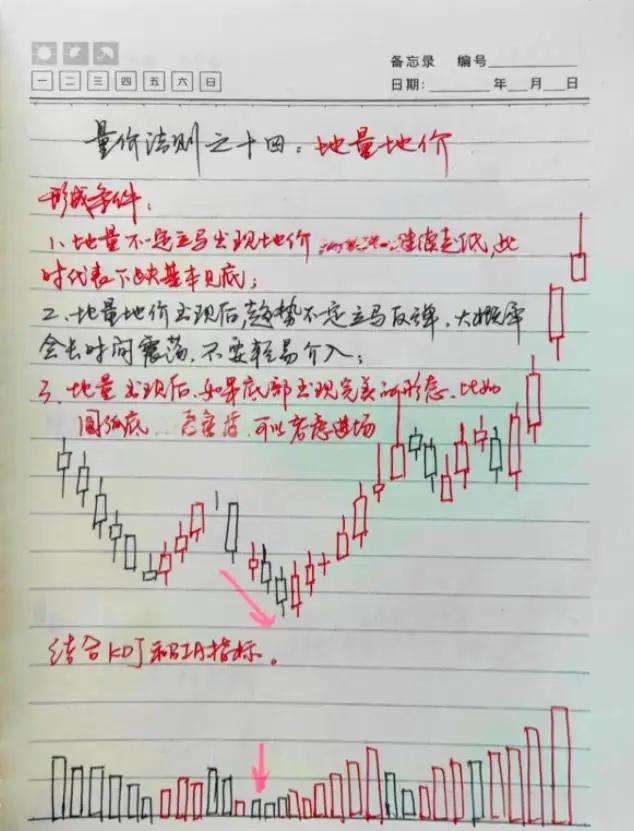 备忘录 编号
一 二 三 四 五 六 日
日期: 年 月 日
量价法则之十四:地量地价
形成条件:
1、地量不一定立马出现地价 继续走低,此
时代表下跌基本见底;
2、地量地价出现后,趋势不一定立马反弹,大概率
会长时间震荡,不要轻易介入;
3、地量出现后,如果底部出现完美的形态,比如
圆弧底 可以考虑进场
结合KDJ和BIA指标。